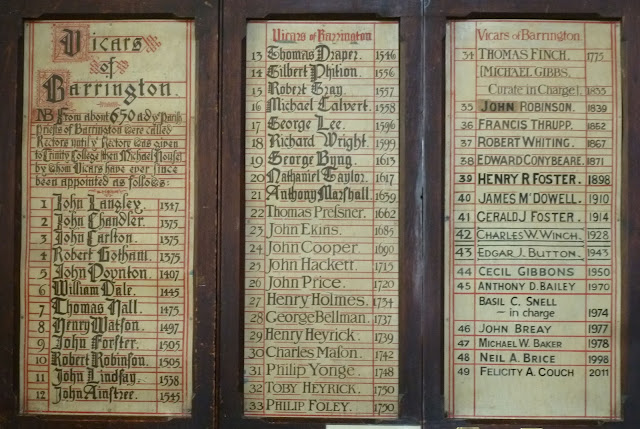 Vicars
of
Barrington.
NB From about 650 AD yᵉ Parish
Priests of Barrington were called
Rectors until yᵉ Rectory was given
to Trinity College then Michael House
by whom Vicars have ever since
been appointed as follows:
1 John Langley. 1347
2 John Chandler. 1375
3 John Carlton. 1375
4 Robert Gotham. 1375
5 John Poynton 1407
6 William Dale. 1445
7 Thomas Hall. 1475
8 Henry Watson. 1497
9 John Forster. 1505
10 Robert Robinson. 1505
11 John Lindsay. 1538
12 John Ainstree. 1545
Vicars of Barrington
13 Thomas Draper. 1546
14 Gilbert Phition. 1556
15 Robert Gray. 1557
16 Michael Calvert. 1558
17 George Lee. 1596
18 Richard Wright. 1599
19 George Byng. 1613
20 Nathaniel Taylor. 1617
21 Anthony Marshall. 1639
22 Thomas Presner. 1662
23 John Ekins. 1685
24 John Cooper 1690
25 John Hackett. 1715
26 John Price. 1720
27 Henry Holmes. 1734
28 George Bellman. 1737
29 Henry Heyrick. 1739
30 Charles Mason. 1742
31 Philip Yonge. 1748
32 Toby Heyrick. 1750
33 Philip Foley. 1750
Vicars of Barrington
34 Thomas Finch. 1775
[Michael Gibbs.
Curate in Charge]. 1833
35 John Robinson. 1839
36 Francis Thrupp. 1852
37 Robert Whiting. 1867
38 Edward Conybeare. 1871
39 Henry R Foster 1898
40 James McDowell. 1910
41 Gerald J Foster. 1914
42 Charles W. Winch. 1928
43 Edgar J. Button. 1943
44 Cecil Gibbons 1950
45 Anthony D. Bailey 1970
Basil C. Snell
– in charge 1974
46 John Breay 1977
47 Michael W. Baker 1978
48 Neil A. Brice 1998
49 Felicity A. Couch 2011